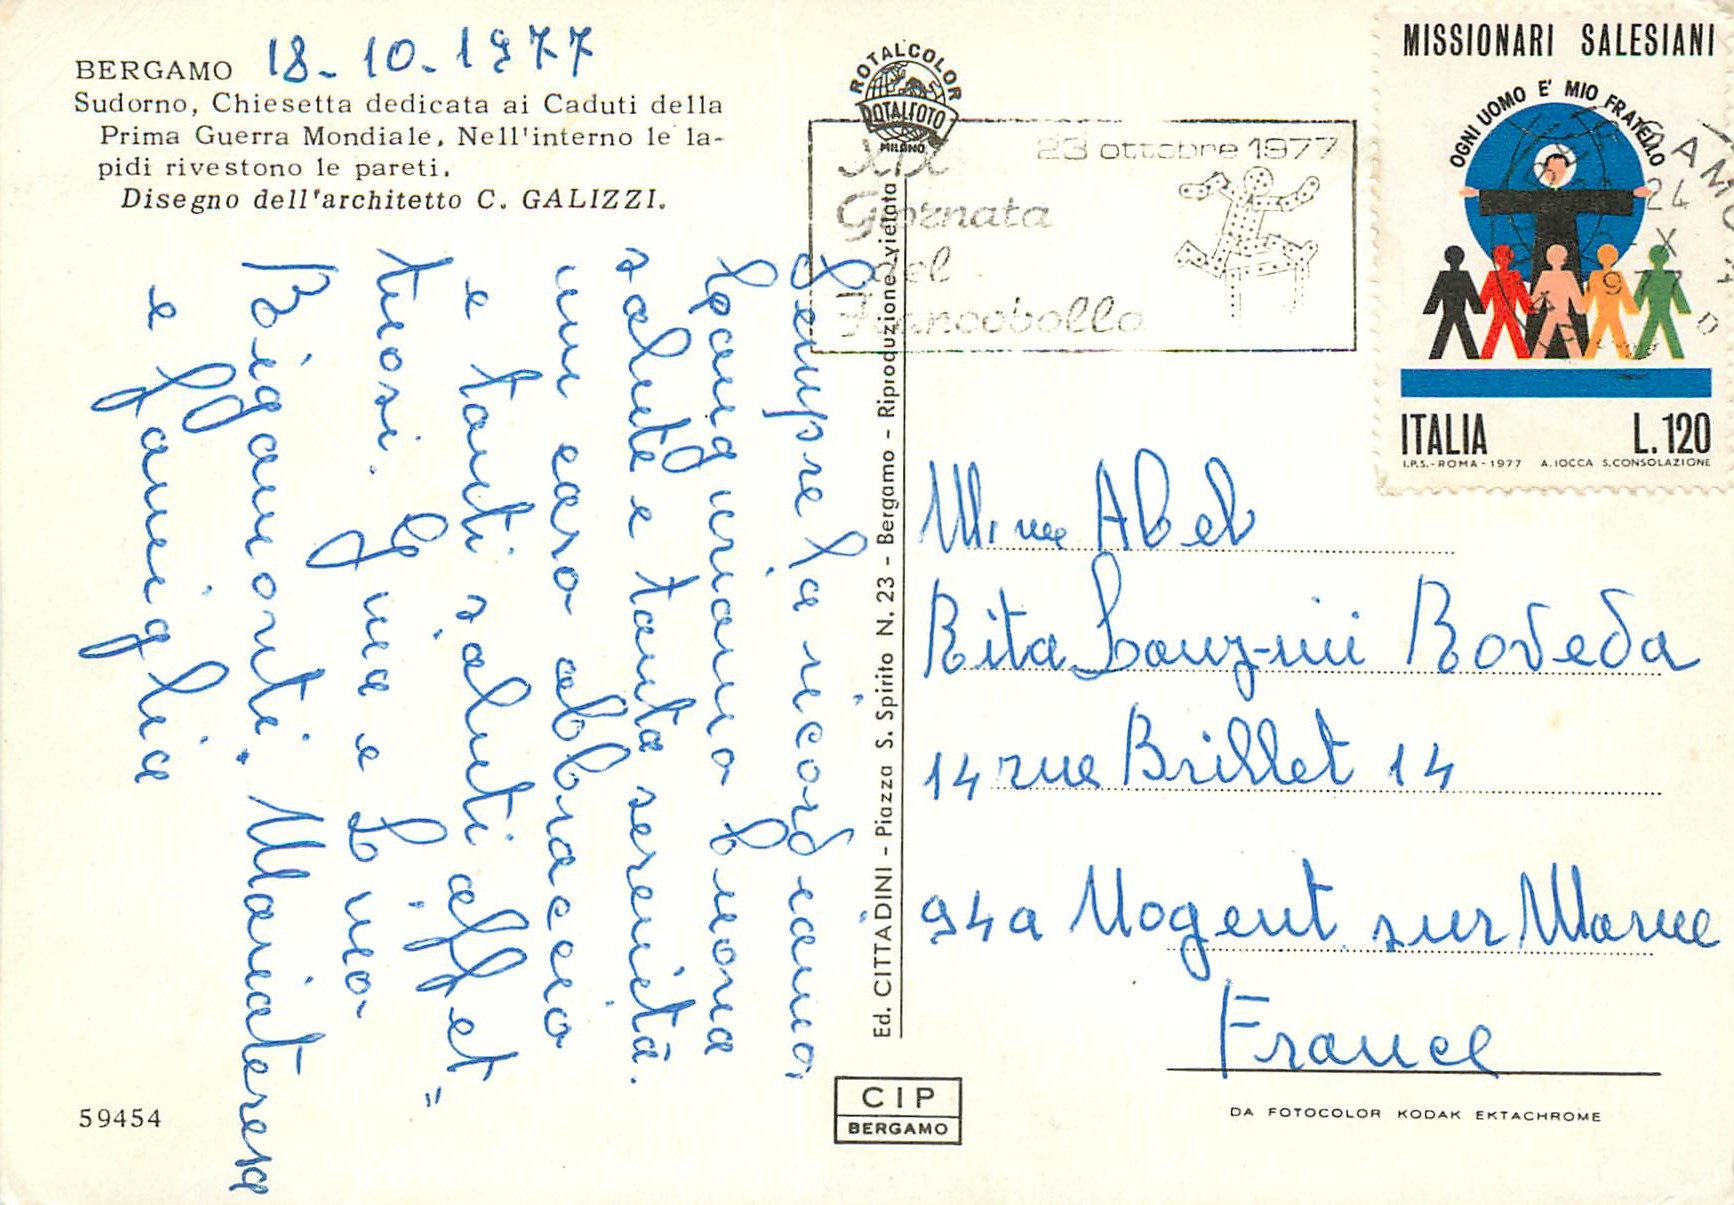 BERGAMO 18-10-1977
Sudorno, Chiesetta dedicata ai Caduti della
Prima Guerra Mondiale. Nell'interno le la-
pidi rivestono le pareti.
Disegno dell'architetto C. GALIZZI.
Sempre la ricordiamo,
salute e tanta serenità.
un caro abbraccio
e tanti saluti affet=
tuosi. Gina e Lino
Bigamonti. Mariateresa
e famiglia
59454
ROTALCOLOR
ROTALFOTO
MILANO
XIX 23 ottobre 1977
Giornata
del
Francobollo
Ed. CITTADINI - Piazza S. Spirito N. 23 - Bergamo - Riproduzione vietata
CIP
BERGAMO
MISSIONARI SALESIANI
OGNI UOMO E' MIO FRATELLO
24
X
1977
ITALIA L.120
I.P.S.-ROMA-1977 A.IOCCA S.CONSOLAZIONE
Mme Abel
Rita Roveda
14 rue Brillet 14
94a Nogent sur Marne
France
DA FOTOCOLOR KODAK EKTACHROME